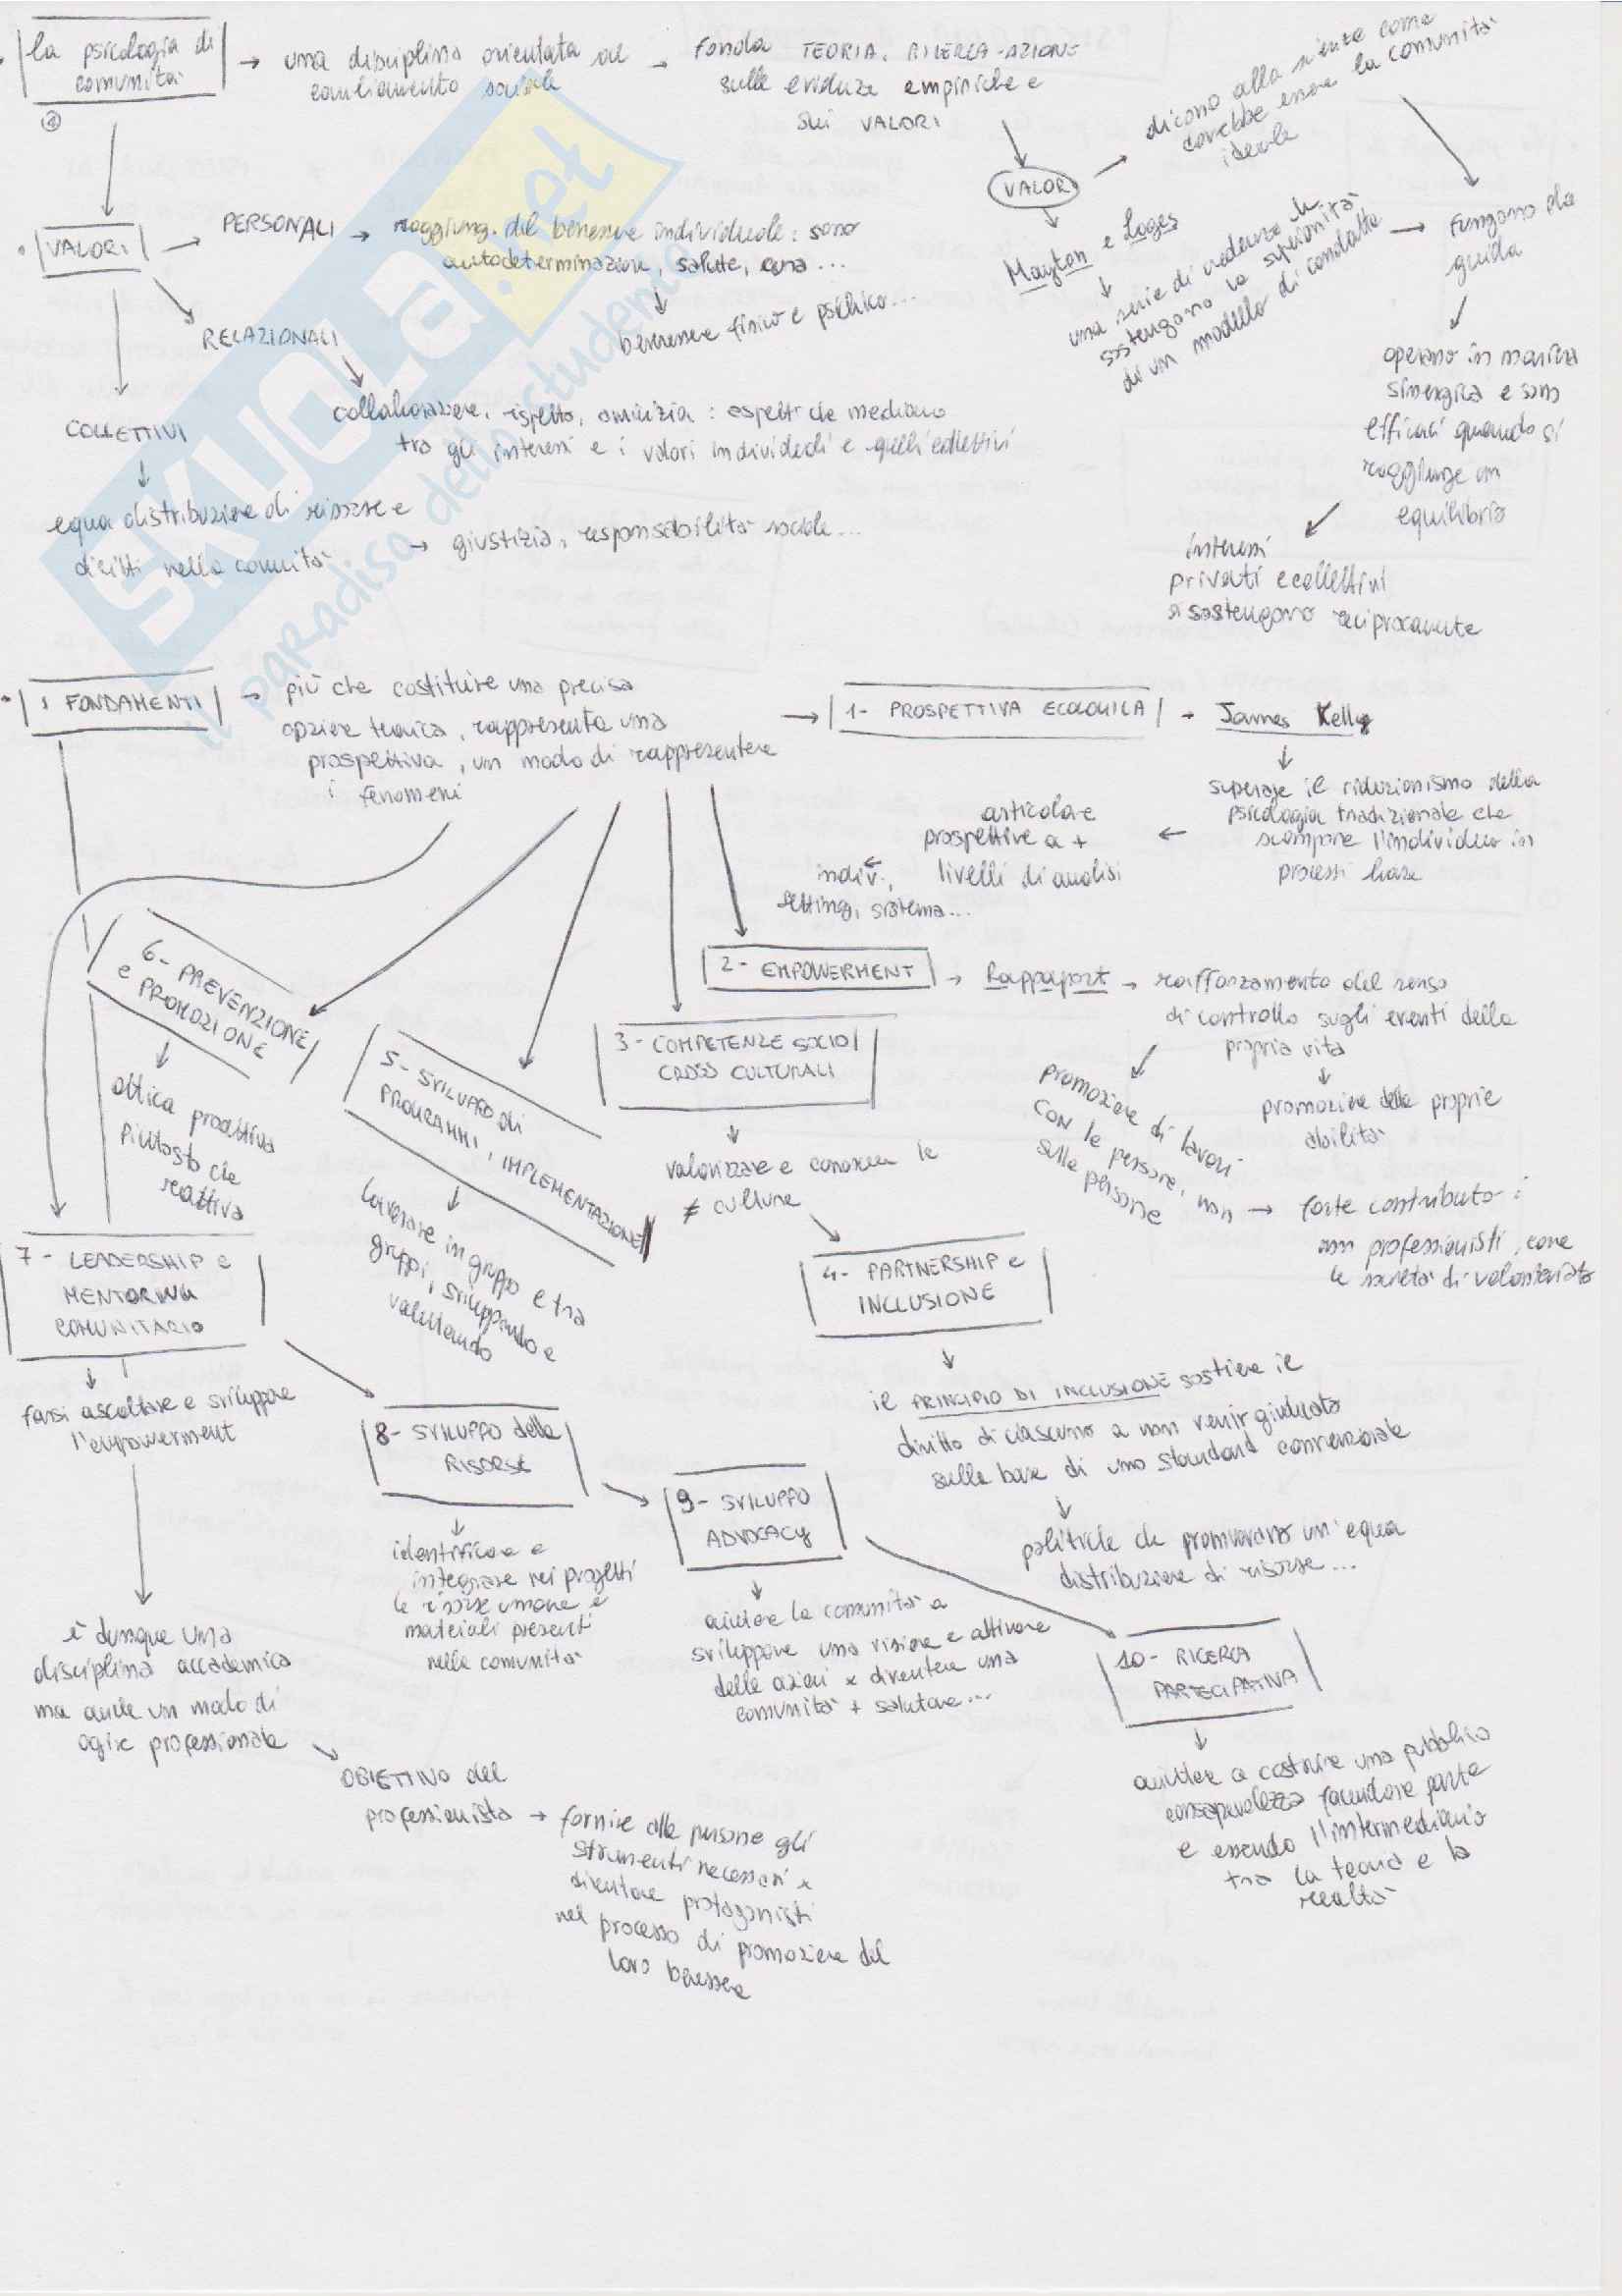 la psicologia di
comunità
①
→ una disciplina orientata al
cambiamento sociale
→ fonda TEORIA, RICERCA-AZIONE
sulle evidenze empiriche e
sui VALORI
VALORI
dicono alla scienza come
dovrebbe essere la comunità
ideale
Mayton e Loges
una serie di credenze che
sostengono la superiorità
di un modello di condotta
→ fungono da
guida
operano in maniera
sinergica e sono
efficaci quando si
raggiunge un
equilibrio
interessi
privati e collettivi
si sostengono reciprocamente
VALORI
→ PERSONALI → raggiung. del benessere individuale: sono
autodeterminazione, salute, cura...
benessere fisico e psichico...
RELAZIONALI
collaborazione, rispetto, amicizia: aspetti che mediano
tra gli interessi e i valori individuali e quelli collettivi
COLLETTIVI
equa distribuzione di risorse e
diritti nella comunità
→ giustizia, responsabilità sociale...
I FONDAMENTI
→ più che costituire una precisa
opzione teorica, rappresenta una
prospettiva, un modo di rappresentare
i fenomeni
→ 1- PROSPETTIVA ECOLOGICA → James Kelly
superare il riduzionismo della
psicologia tradizionale che
scompone l'individuo in
processi base
articolare
prospettive a +
livelli di analisi
indiv.,
setting, sistema...
2- EMPOWERMENT → Rappaport → rafforzamento del senso
di controllo sugli eventi della
propria vita
promozione delle proprie
abilità
promozione di lavori
con le persone, non
sulle persone
→ forte contributo:
non professionisti, come
le società di volontariato
3- COMPETENZE SOCIO/
CROSS CULTURALI
valorizzare e conoscere le
≠ culture
4- PARTNERSHIP e
INCLUSIONE
il PRINCIPIO DI INCLUSIONE sostiene il
diritto di ciascuno a non venir giudicato
sulla base di uno standard convenzionale
politiche che promuovano un'equa
distribuzione di risorse...
5- SVILUPPO di
PROGRAMMI, IMPLEMENTAZIONE
lavorare in gruppo e tra
gruppi, sviluppando e
valutando
6- PREVENZIONE
e PROMOZIONE
ottica proattiva
piuttosto che
reattiva
7- LEADERSHIP e
MENTORING
COMUNITARIO
farsi ascoltare e sviluppare
l'empowerment
8- SVILUPPO delle
RISORSE
identificare e
integrare nei progetti
le risorse umane e
materiali presenti
nelle comunità
9- SVILUPPO
ADVOCACY
aiutare la comunità a
sviluppare una visione e attivare
delle azioni x diventare una
comunità + salutare...
10- RICERCA
PARTECIPATIVA
aiutare a costruire una pubblica
consapevolezza facendone parte
e essendo l'intermediario
tra la teoria e la
realtà
è dunque una
disciplina accademica
ma anche un modo di
agire professionale
OBIETTIVO del
professionista → fornire alle persone gli
strumenti necessari x
diventare protagonisti
nel processo di promozione del
loro benessere
SKUOLA.net
il paradiso dello studente